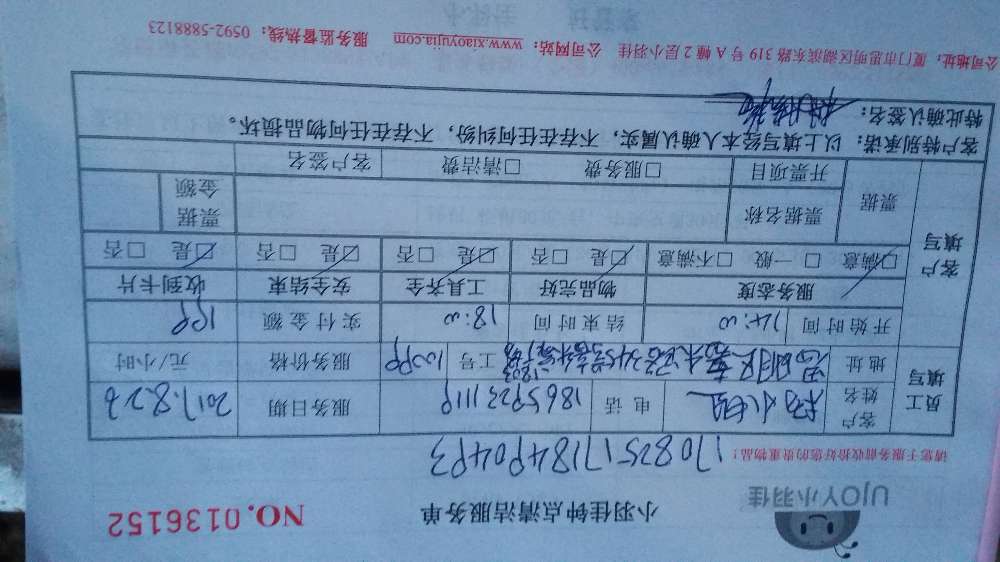 UJOY小羽佳
小羽佳钟点清洁服务单 NO.0136152
请您于服务前收拾好您的贵重物品!
员工填写
客户姓名 杨小姐 电话 18659231119 服务日期 2017.8.26
地址 思明区 工号 服务价格 元/小时
开始时间 14:00 结束时间 18:00 实付金额
客户填写
服务态度 物品完好 工具齐全 安全结束 收到卡片
☑满意 □一般 □不满意 ☑是 □否 ☑是 □否 ☑是 □否 ☑是 □否
票据 票据名称 票据金额
开票项目 □服务费 □清洁费 客户签名
客户特别承诺:以上填写经本人确认属实,不存在任何纠纷,不存在任何物品损坏。
特此确认签名:
公司地址:厦门市思明区湖滨东路 319 号 A 幢 2 层小羽佳 公司网站:www.xiaoyujia.com 服务监督热线:0592-5888123